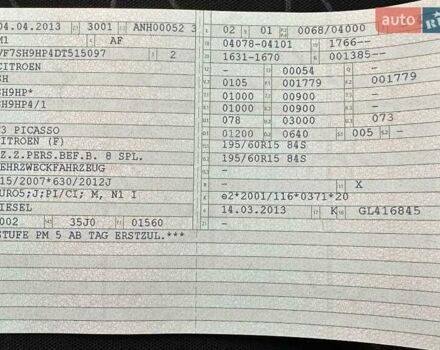 04.04.2013 3001 ANH00052 3
M1 AF
VF7SH9HP4DT515097 2
CITROEN
SH
SH9HP*
SH9HP4/1
C3 PICASSO
CITROEN (F)
FZ.Z.PERS.BEF.B. 8 SPL.
MEHRZWECKFAHRZEUG
715/2007*630/2012J
EURO5;J;PI/CI; M, N1 I
DIESEL
0002 35J0 01560
STUFE PM 5 AB TAG ERSTZUL.***
02 01 0068/04000
04078-04101 1766--
1631-1670 001385--
-- 00054 --
0105 001779 001779
01000 00900 --
01000 00900 --
078 03000 073
01200 0640 005 --
195/60R15 84S
195/60R15 84S
--
-- X
e2*2001/116*0371*20
14.03.2013 K GL416845
--
auto
RIA